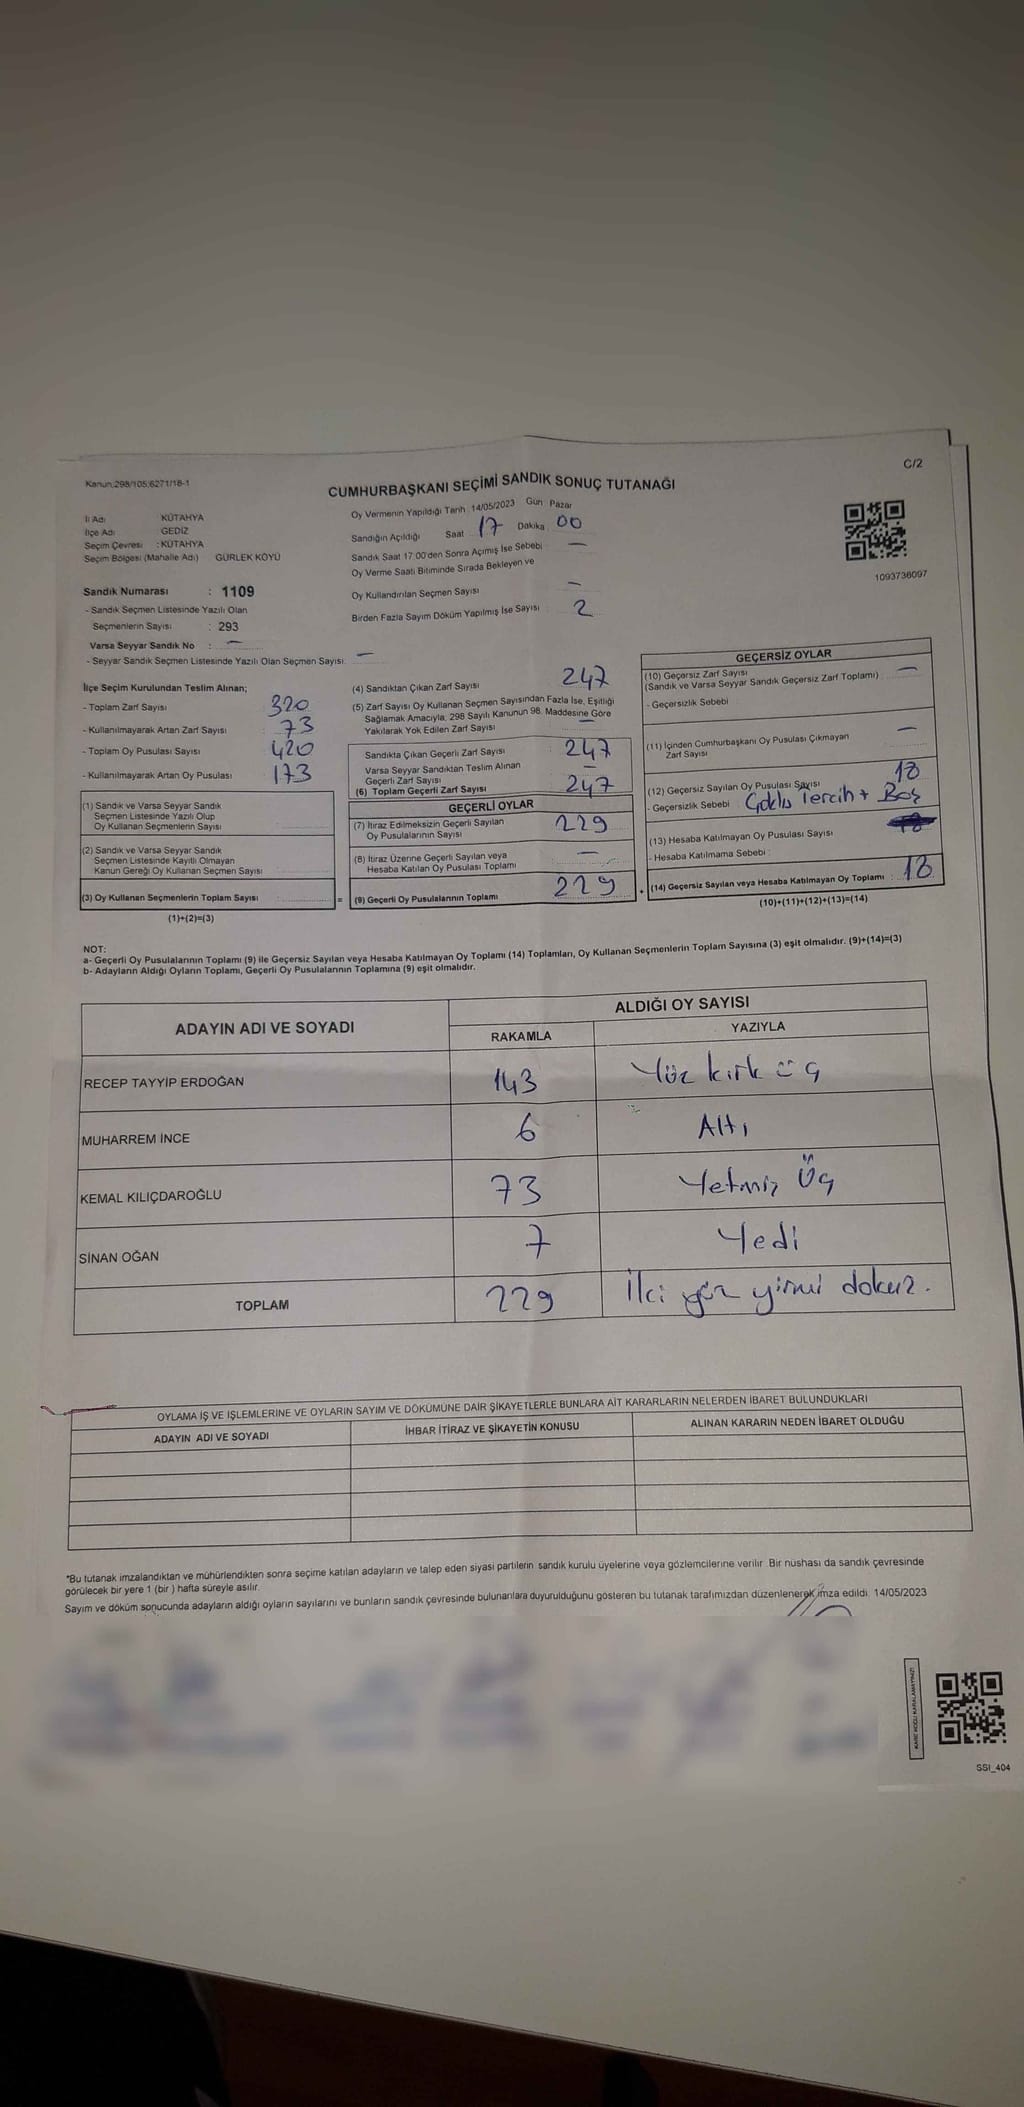 C/2
Kanun:298/105;6271/18-1
CUMHURBAŞKANI SEÇİMİ SANDIK SONUÇ TUTANAĞI
İl Adı KÜTAHYA
İlçe Adı GEDİZ
Seçim Çevresi :KÜTAHYA
Seçim Bölgesi (Mahalle Adı) GÜRLEK KÖYÜ
Sandık Numarası : 1109
- Sandık Seçmen Listesinde Yazılı Olan
Seçmenlerin Sayısı : 293
Varsa Seyyar Sandık No : —
- Seyyar Sandık Seçmen Listesinde Yazılı Olan Seçmen Sayısı: —
Oy Vermenin Yapıldığı Tarih 14/05/2023 Gün Pazar
Sandığın Açıldığı Saat 17 Dakika 00
Sandık Saat 17:00'den Sonra Açımış İse Sebebi —
Oy Verme Saati Bitiminde Sırada Bekleyen ve
Oy Kullandırılan Seçmen Sayısı —
Birden Fazla Sayım Döküm Yapılmış İse Sayısı 2
1093736097
İlçe Seçim Kurulundan Teslim Alınan;
- Toplam Zarf Sayısı 320
- Kullanılmayarak Artan Zarf Sayısı 73
- Toplam Oy Pusulası Sayısı 420
- Kullanılmayarak Artan Oy Pusulası 173
(1) Sandık ve Varsa Seyyar Sandık
Seçmen Listesinde Yazılı Olup
Oy Kullanan Seçmenlerin Sayısı
(2) Sandık ve Varsa Seyyar Sandık
Seçmen Listesinde Kayıtlı Olmayan
Kanun Gereği Oy Kullanan Seçmen Sayısı
(3) Oy Kullanan Seçmenlerin Toplam Sayısı
(1)+(2)=(3)
(4) Sandıktan Çıkan Zarf Sayısı 247
(5) Zarf Sayısı Oy Kullanan Seçmen Sayısından Fazla İse, Eşitliği
Sağlamak Amacıyla, 298 Sayılı Kanunun 98. Maddesine Göre
Yakılarak Yok Edilen Zarf Sayısı —
Sandıkta Çıkan Geçerli Zarf Sayısı 247
Varsa Seyyar Sandıktan Teslim Alınan
Geçerli Zarf Sayısı —
(6) Toplam Geçerli Zarf Sayısı 247
GEÇERLİ OYLAR
(7) İtiraz Edilmeksizin Geçerli Sayılan
Oy Pusulalarının Sayısı 229
(8) İtiraz Üzerine Geçerli Sayılan veya
Hesaba Katılan Oy Pusulası Toplamı —
= (9) Geçerli Oy Pusulalarının Toplamı 229
GEÇERSİZ OYLAR
(10) Geçersiz Zarf Sayısı
(Sandık ve Varsa Seyyar Sandık Geçersiz Zarf Toplamı) —
- Geçersizlik Sebebi
(11) İçinden Cumhurbaşkanı Oy Pusulası Çıkmayan
Zarf Sayısı —
(12) Geçersiz Sayılan Oy Pusulası Sayısı 18
- Geçersizlik Sebebi : Çoklu Tercih + Boş
(13) Hesaba Katılmayan Oy Pusulası Sayısı
- Hesaba Katılmama Sebebi :
+ (14) Geçersiz Sayılan veya Hesaba Katılmayan Oy Toplamı : 18
(10)+(11)+(12)+(13)=(14)
NOT:
a- Geçerli Oy Pusulalarının Toplamı (9) ile Geçersiz Sayılan veya Hesaba Katılmayan Oy Toplamı (14) Toplamları, Oy Kullanan Seçmenlerin Toplam Sayısına (3) eşit olmalıdır. (9)+(14)=(3)
b- Adayların Aldığı Oyların Toplamı, Geçerli Oy Pusulalarının Toplamına (9) eşit olmalıdır.
ADAYIN ADI VE SOYADI ALDIĞI OY SAYISI
RAKAMLA YAZIYLA
RECEP TAYYİP ERDOĞAN 143 Yüz kırk üç
MUHARREM İNCE 6 Altı
KEMAL KILIÇDAROĞLU 73 Yetmiş Üç
SİNAN OĞAN 7 Yedi
TOPLAM 229 İki yüz yirmi dokuz.
OYLAMA İŞ VE İŞLEMLERİNE VE OYLARIN SAYIM VE DÖKÜMÜNE DAİR ŞİKAYETLERLE BUNLARA AİT KARARLARIN NELERDEN İBARET BULUNDUKLARI
ADAYIN ADI VE SOYADI İHBAR İTİRAZ VE ŞİKAYETİN KONUSU ALINAN KARARIN NEDEN İBARET OLDUĞU
*Bu tutanak imzalandıktan ve mühürlendikten sonra seçime katılan adayların ve talep eden siyasi partilerin sandık kurulu üyelerine veya gözlemcilerine verilir. Bir nüshası da sandık çevresinde
görülecek bir yere 1 (bir ) hafta süreyle asılır.
Sayım ve döküm sonucunda adayların aldığı oyların sayılarını ve bunların sandık çevresinde bulunanlara duyurulduğunu gösteren bu tutanak tarafımızdan düzenlenerek imza edildi. 14/05/2023
KARE KODU KARALAMAYINIZ!
SSI_404